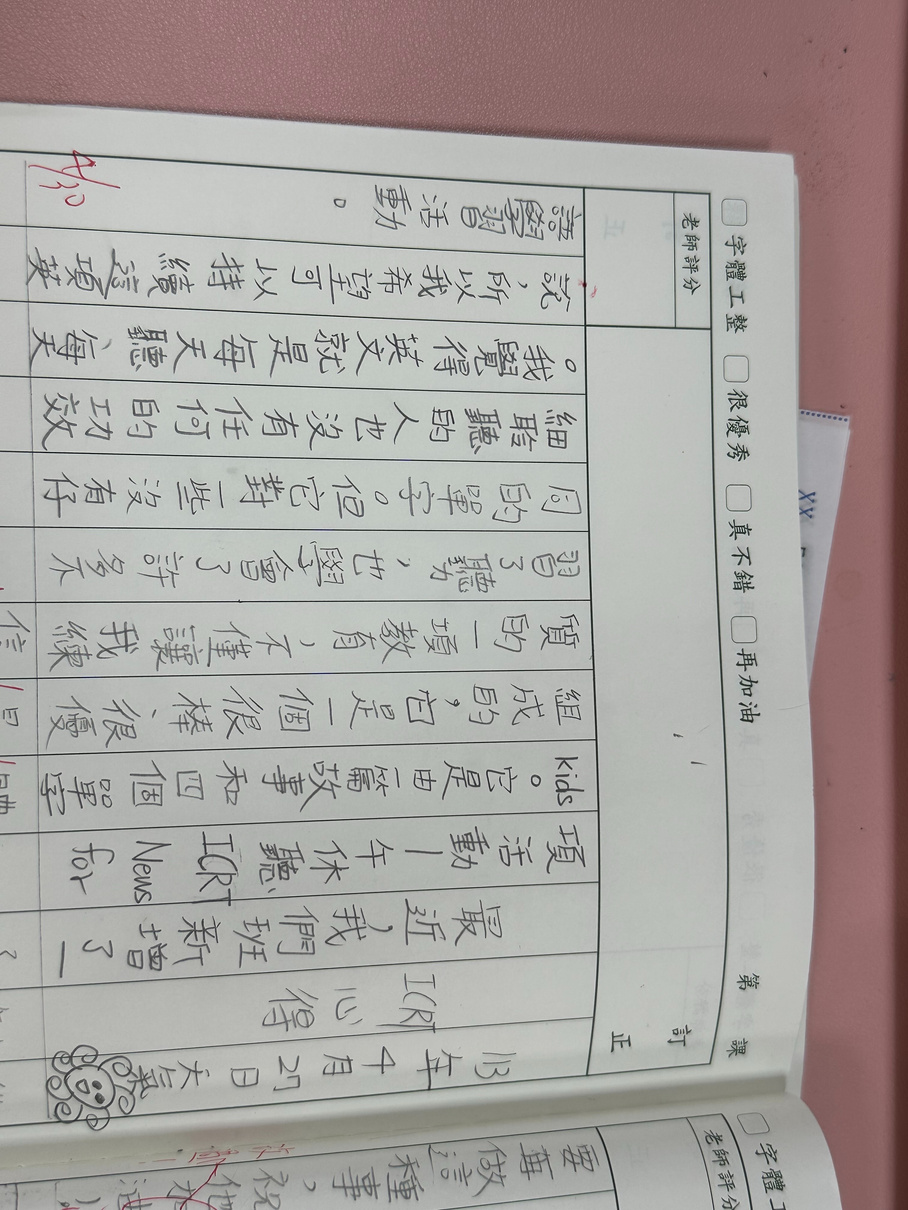 字體工整 很優秀 真不錯 再加油 第 課
老師評分
訂正
113年4月27日天氣
ICRT心得
最近,我們班新增了一
項活動—午休聽ICRT News for
kids。它是由一篇故事和四個單字
組成的,它是一個很棒、很優
質的一項教育,不僅讓我練
習了聽力,也學會了許多不
同的單字。但它對一些沒有仔
細聆聽的人也沒有任何的功效
。我覺得英文就是每天聽、每天
說,所以我希望可以持續這項英
語學習活動。
4/30
字體工
老師評分
種事,